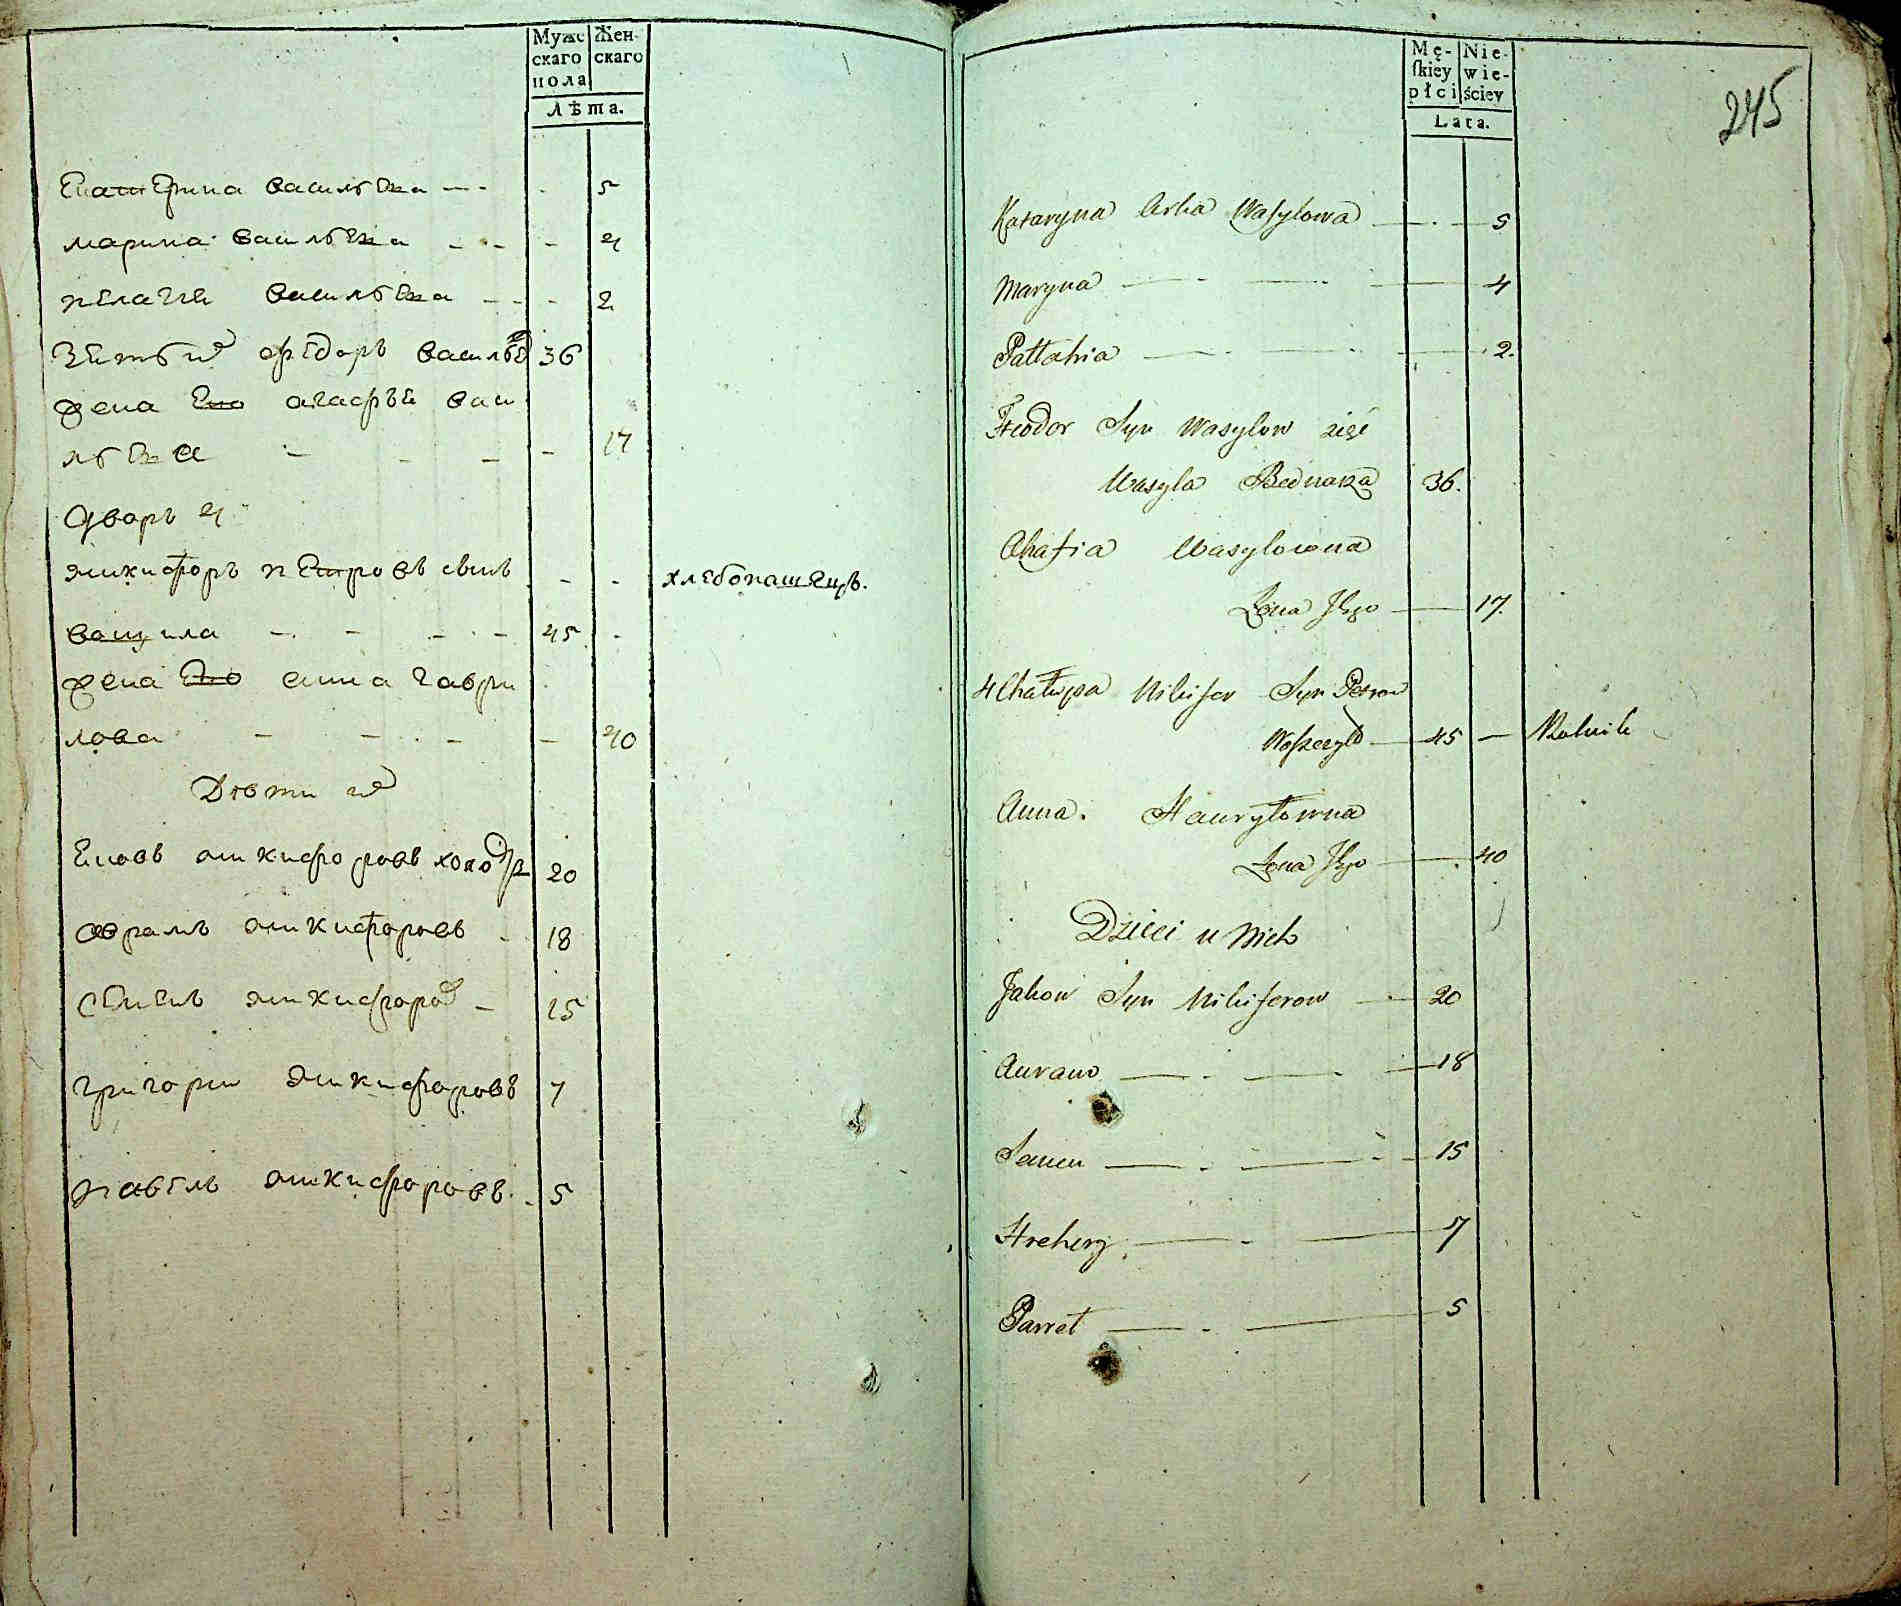 Мужскаго пола
Женскаго
Лѣта.
Екатерина васильева 5
марина васильева 4
пелагия васильева 2
Зять их федоръ васильев 36
жена Его агафья васи
льева 17
Дворъ 4
Никифоръ петровъ сынъ хлебопашецъ.
ващила 45
жена Его анна гаври
лова 40
Дѣти их
Яковъ никифоровъ 20
аврамъ никифоровъ 18
семенъ никифоров 15
григори никифоровъ 7
павелъ никифоровъ 5
245
Męſkiey płci
Niewieściey
Lata.
Kataryna Wasylowa 5
Maryna 4
Pałahia 2.
Fteodor Syn Wasylow zięć
Wasyla Bednarza 36.
Ahafia Wasylowna
Żona Jego 17.
4 Chałupa Nikifor Syn Petrow
Woszczyło 45 Rolnik
Anna. Hauryłowna
Żona Jego 40
Dzieci u Nich
Jakow Syn Nikiforow 20
Auram 18
Semen 15
Hrehory 7
Paweł 5